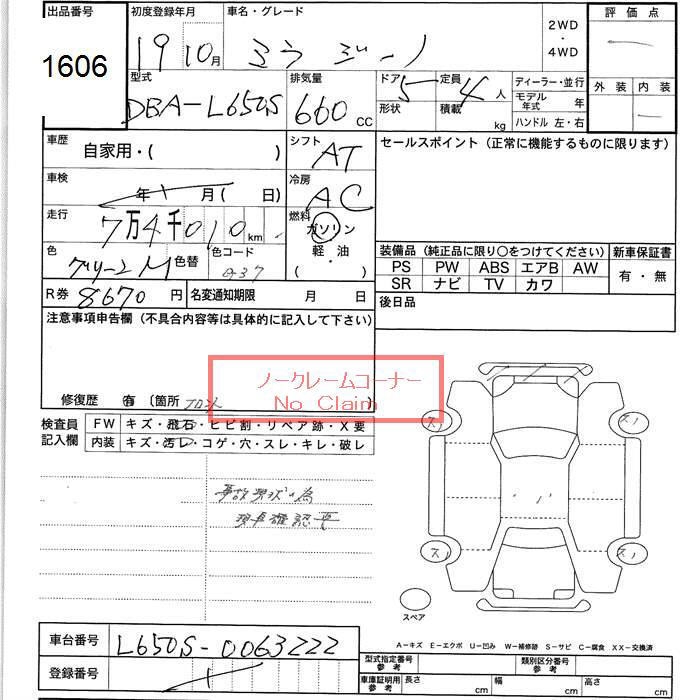 出品番号 1606
初度登録年月 19 10月
車名・グレード ミラ ジーノ
2WD ・ 4WD
評価点
外装 内装
型式 DBA-L650S
排気量 660 CC
ドア 5
形状
定員 4 人
積載 kg
ディーラー・並行
モデル年式 年
ハンドル 左・右
車歴 自家用・( )
シフト AT
車検 年 月 ( 日)
冷房 AC
走行 7万4千010 km
燃料 ガソリン 軽・油 ( )
色 グリーンM 色替 色コード
R券 8670 円
名変通知期限 月 日
セールスポイント (正常に機能するものに限ります)
装備品 (純正品に限り○をつけてください)
新車保証書
PS PW ABS エアB AW
有・無
SR ナビ TV カワ
後日品
注意事項申告欄 (不具合内容等は具体的に記入して下さい)
ノークレームコーナー
No Claim
修復歴 有 (箇所 フロント )
検査員記入欄
FW キズ・飛石・ヒビ割・リペア跡・X要
内装 キズ・汚レ・コゲ・穴・スレ・キレ・破レ
事故現状の為
現車確認要
スペア
A-キズ E-エクボ U-凹み W-補修跡 S-サビ C-腐食 XX-交換済
車台番号 L650S-0063222
登録番号
型式指定番号 参考
類別区分番号 参考
車庫証明用 参考 長さ cm 幅 cm 高さ cm